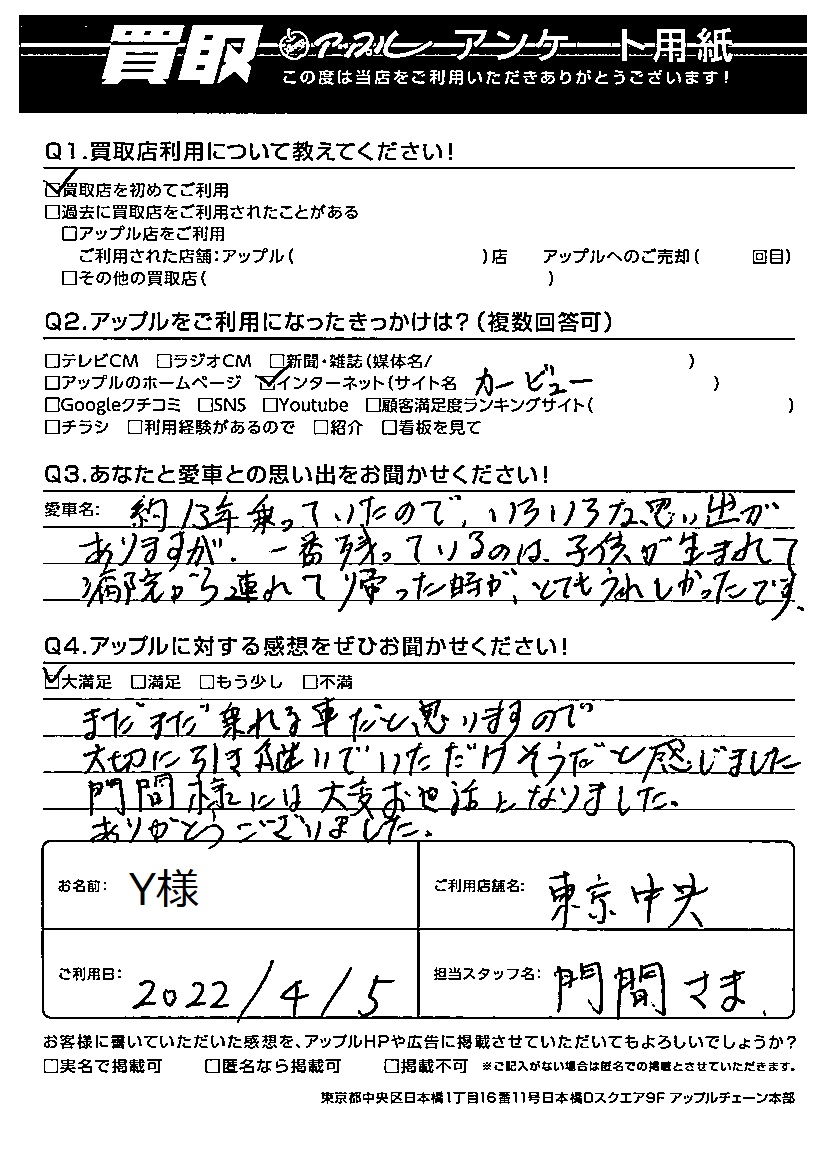 買取 アップル アンケート用紙
この度は当店をご利用いただきありがとうございます!
Q1.買取店利用について教えてください!
☑買取店を初めてご利用
□過去に買取店をご利用されたことがある
□アップル店をご利用
ご利用された店舗:アップル( )店 アップルへのご売却( 回目)
□その他の買取店( )
Q2.アップルをご利用になったきっかけは?(複数回答可)
□テレビCM □ラジオCM □新聞・雑誌(媒体名/ )
□アップルのホームページ ☑インターネット(サイト名 カービュー )
□Googleクチコミ □SNS □Youtube □顧客満足度ランキングサイト( )
□チラシ □利用経験があるので □紹介 □看板を見て
Q3.あなたと愛車との思い出をお聞かせください!
愛車名: 約13年乗っていたので、いろいろな思い出が
ありますが、一番残っているのは、子供が生まれて
病院から連れて帰った時が、とてもうれしかったです、
Q4.アップルに対する感想をぜひお聞かせください!
☑大満足 □満足 □もう少し □不満
まだまだ乗れる車だと思いますので
大切に引き継いでいただけそうだと感じました
門間様には大変お世話になりました。
ありがとうございました。
お名前: Y様 ご利用店舗名: 東京中央
ご利用日: 2022/4/5 担当スタッフ名: 門間さま
お客様に書いていただいた感想を、アップルHPや広告に掲載させていただいてもよろしいでしょうか?
□実名で掲載可 □匿名なら掲載可 □掲載不可 ※ご記入がない場合は匿名での掲載とさせていただきます。
東京都中央区日本橋1丁目16番11号日本橋Dスクエア9F アップルチェーン本部